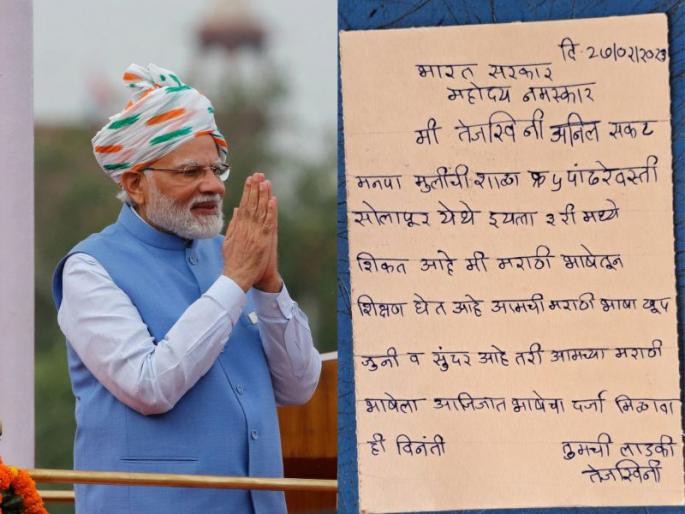 दि. २७/०२/२०२३
भारत सरकार
महोदय नमस्कार
मी तेजस्विनी अनिल सकट
मनपा मुलींची शाळा क्र ५ पांढरेवस्ती
सोलापूर येथे इयत्ता ३री मध्ये
शिकत आहे मी मराठी भाषेतून
शिक्षण घेत आहे आमची मराठी भाषा खूप
जुनी व सुंदर आहे तरी आमच्या मराठी
भाषेला अभिजात भाषेचा दर्जा मिळावा
ही विनंती तुमची लाडकी
तेजस्विनी